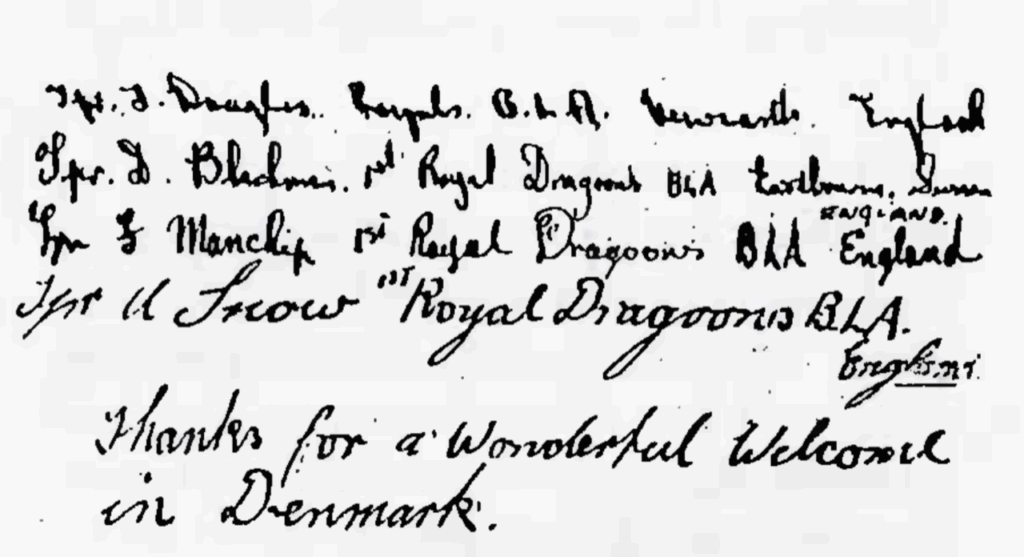 Tpr. J. Douglas. Royals. B.L.A. Newcastle. England
Tpr. D. 1st Royal Dragoons BLA Eastbourne. Sussex
ENGLAND.
Tpr F Manchip 1st Royal Dragoons BLA England
Tpr U Snow 1ST Royal Dragoons B.L.A.
England.
Thanks for a Wonderful Welcome
in Denmark.